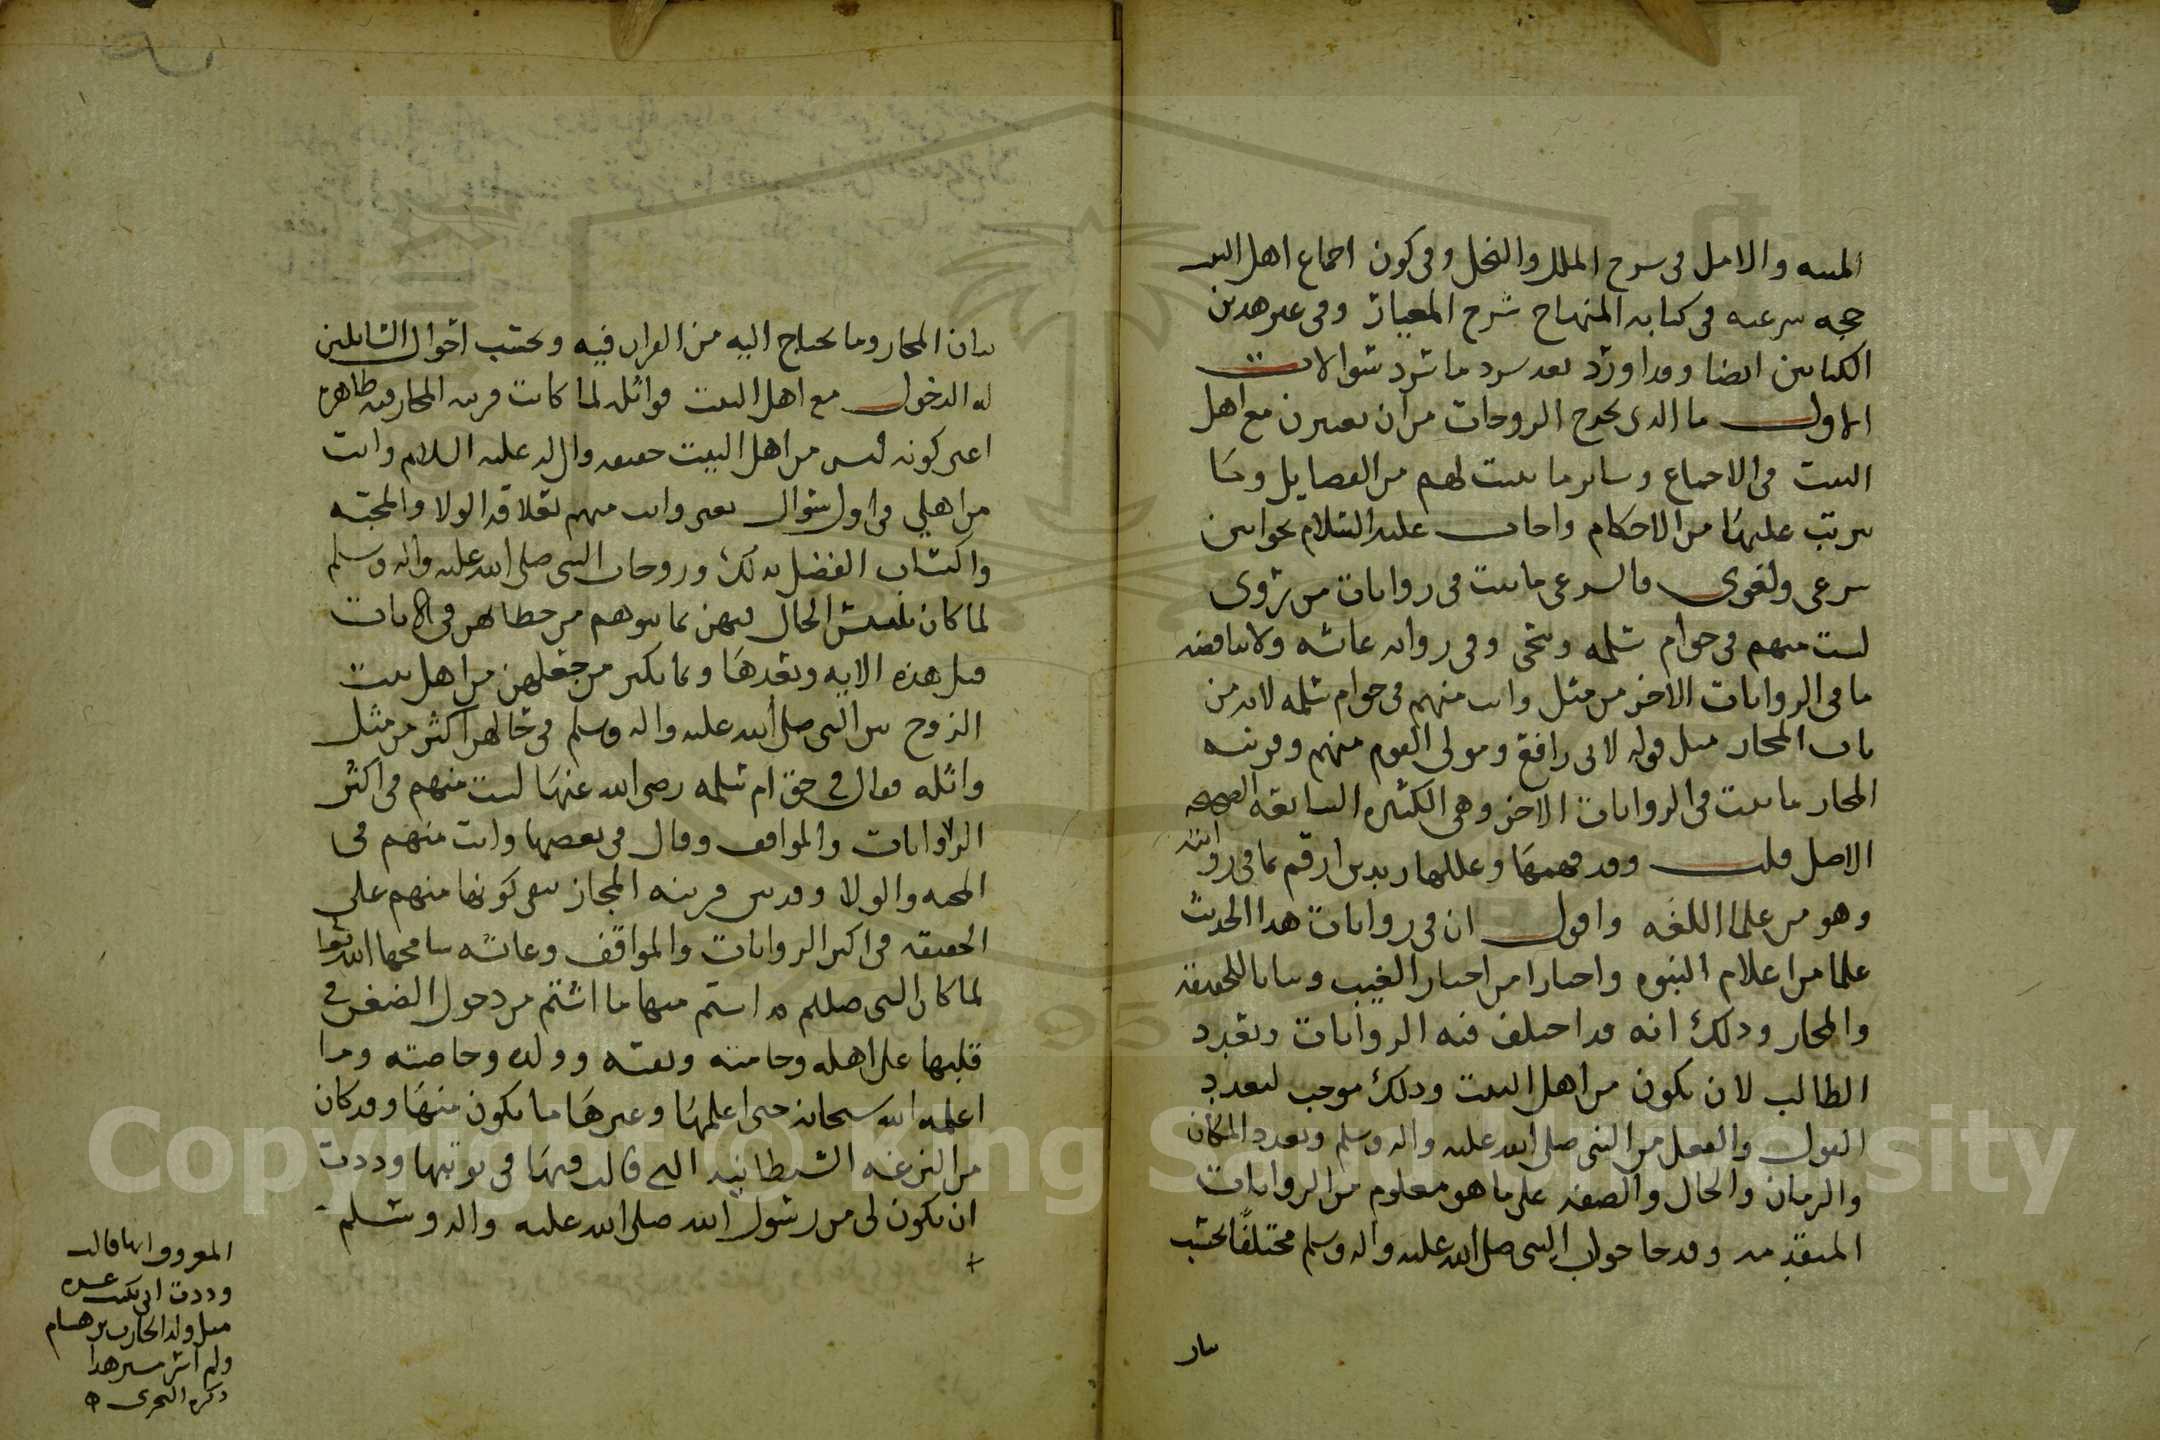 المنيه والامل في شرح الملل والنحل وفي كون اجماع اهل البيت
حجه شرعيه في كتابه المنهاج شرح المعيار وفي غير هذين
الكتابين ايضا وقد اورد بعد سرد ما سرد سوالات
الاول ما الذي يخرج الزوجات من ان يعتبرن مع اهل
البيت في الاجماع وساير ما يثبت لهم من الفضايل وما
يترتب عليها من الاحكام واجاب عليه السلام بجوابين
شرعي ولغوي فالشرعي ما ثبت في روايات من تروى
لست منهم في حق ام سلمه وتنحي وفي روايه عائشه ولا يناقضه
ما في الروايات الاخر من مثل وانت منهم في حق ام سلمه لانه من
باب المجاز مثل قوله لابي رافع ومولى القوم منهم وقرينه
المجاز ما ثبت في الروايات الاخر وهي الكثيره السابقه الصحيحه
الاصل قلت وقد فهمها وعللها زيد بن ارقم بما في روايته
وهو من علما اللغه واقول ان في روايات هذا الحديث
علما من اعلام النبوه واخبارا من اخبار الغيب وبيانا للحقيقه
والمجاز وذلك انه قد اختلف فيه الروايات وتعدد
الطالب لان يكون من اهل البيت وذلك موجب لتعدد
القول والفعل من النبي صلى الله عليه واله وسلم وتعدد المكان
والزمان والحال والصفه على ما هو معلوم من الروايات
المتقدمه وقد جا جواب النبي صلى الله عليه واله وسلم مختلفا بحسب
بيان
بيان المجاز وما يحتاج اليه من القراين فيه وبحسب احوال السائلين
له الدخول مع اهل البيت فواثله لما كانت قرينه المجاز فيه ظاهره
اعني كونه ليس من اهل البيت حقيقه قال له عليه السلام وانت
من اهلي في اول سوال يعني وانت منهم بعلاقه الولا والمحبه
واكتساب الفضل بذلك وزوجات النبي صلى الله عليه واله وسلم
لما كان يلتبس الحال فيهن بما يتوهم من خطابهن في الايات
قبل هذه الايه وبعدها وبما يكثر من جعلهن من اهل بيت
الزوج بين النبي صلى الله عليه واله وسلم في حالهن اكثر من مثل
واثله فقال في حق ام سلمه رضى الله عنها لست منهم في اكثر
الروايات والمواقف وقال في بعضها وانت منهم في
المحبه والولا وقد بين قرينه المجاز بنفي كونها منهم على
الحقيقه في اكثر الروايات والمواقف وعائشه سامحها الله تعالى
لما كان النبي صللم قد استم منها ما اشتم من دخول الضغن في
قلبها على اهله وحامته وبيته وولده وخاصته وقد
اعلمه الله سبحانه حتى اعلمها وغيرها ما يكون منها وقد كان
من النزغه الشيطانيه التي قالت فيها في توبتها وددت
ان يكون لي من رسول الله صلى الله عليه واله وسلم
المعروف انها قالت
وددت اني ثكلت عشره
مثل ولد الحارث بن هشام
ولم اسر مسير هذا
ذكره